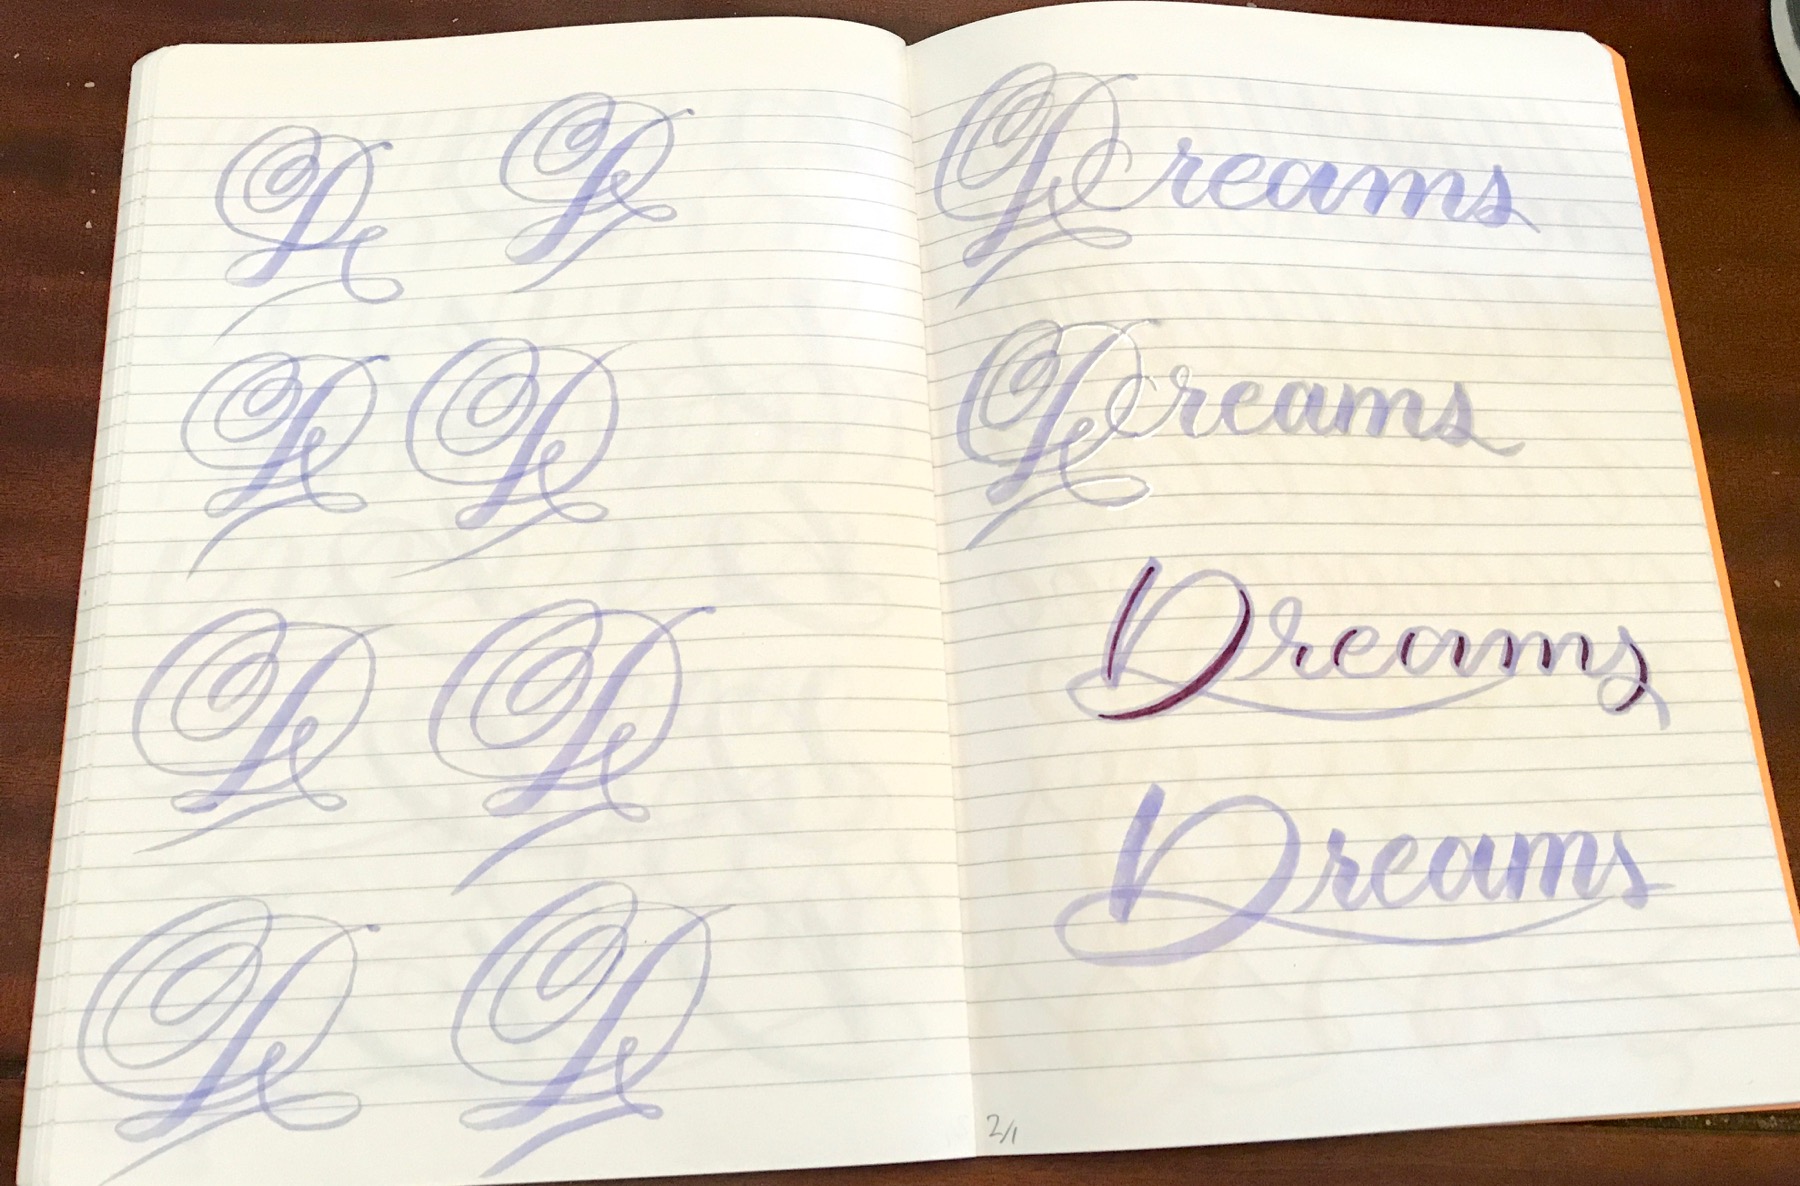 D D
D D
D D
D D
Dreams
Dreams
Dreams
Dreams
2/1